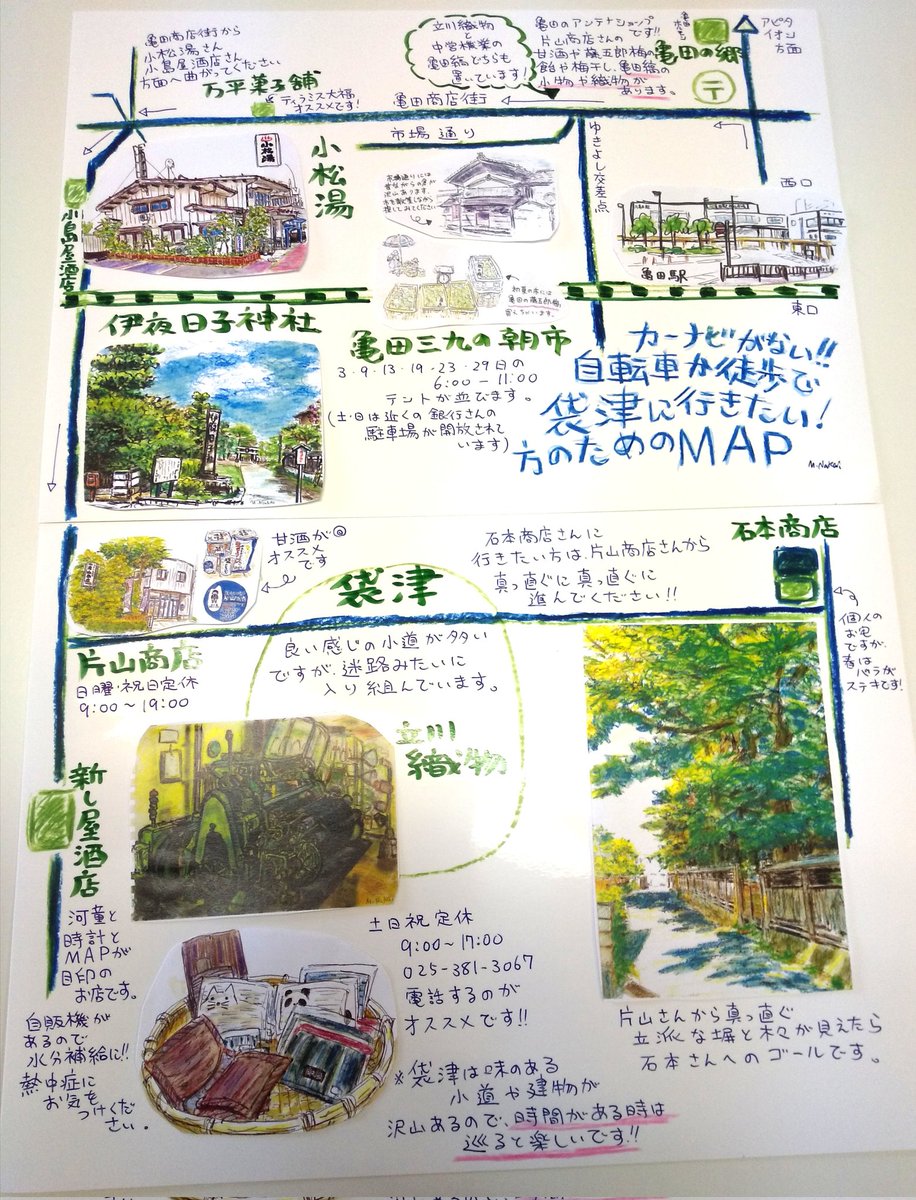 亀田商店街から
小松湯さん
小島屋酒店さん
方面へ曲がってください
万平菓子舗
ティラミス大福
オススメです!
立川織物
と
中営機業の
亀田縞どちらも
置いています!
亀田のアンテナショップ
です!!
片山商店さんの
甘酒や藤五郎梅の
飴や梅干し、亀田縞の
小物や織物が
あります。
亀田の郷
〒
アピタ
イオン
方面
亀田商店街
市場通り
ゆきよし交差点
西口
小松湯
小松湯
小島屋酒店
市場通りには
昔ながらのお店が
沢山あります。
亀田駅
東口
伊夜日子神社
亀田三九の朝市
3・9・13・19・23・29日の
6:00-11:00
テントが並びます。
(土・日は近くの銀行さんの
駐車場が開放されて
います)
カーナビがない!!
自転車か徒歩で
袋津に行きたい!
方のためのMAP
M.Nakai
甘酒が
オススメ
です
袋津
石本商店さんに
行きたい方は片山商店さんから
真っ直ぐに真っ直ぐに
進んでください!!
石本商店
個人の
お宅
ですが、
春は
バラが
ステキです!
片山商店
日曜・祝日定休
9:00~19:00
良い感じの小道が多い
ですが、迷路みたいに
入り組んでいます。
立川
織物
新し屋酒店
河童と
時計と
MAPが
目印の
お店です。
自販機が
あるので
水分補給に!!
熱中症に
お気を
つけくだ
さい。
土日祝定休
9:00~17:00
025-381-3067
電話するのが
オススメです!!
※袋津は味のある
小道や建物が
沢山あるので、時間がある時は
巡ると楽しいです!!
片山さんから真っ直ぐ
立派な塀と木々が見えたら
石本さんへのゴールです。